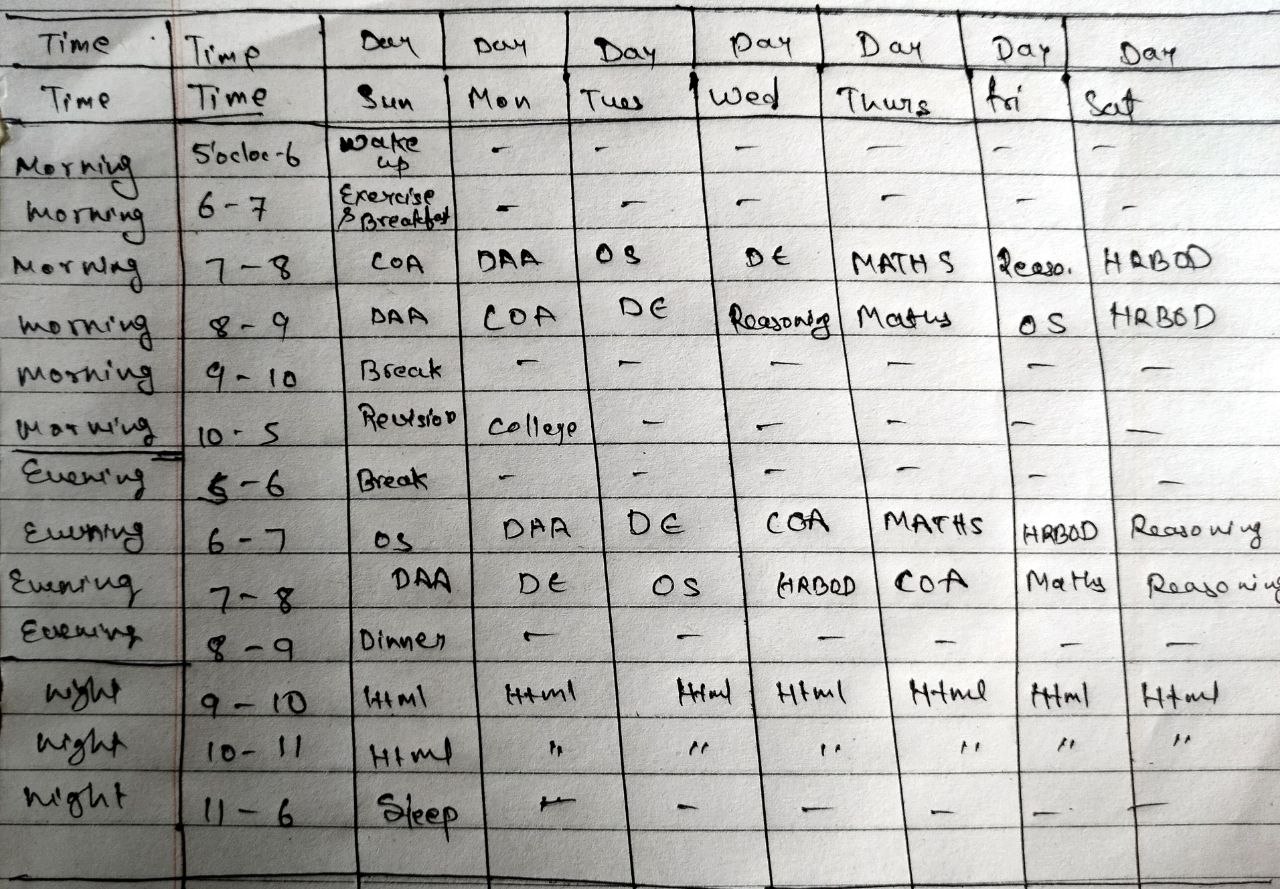 Time Time Day Day Day Day Day Day Day
Time Time Sun Mon Tues Wed Thurs fri Sat
Morning 5'ocloc-6 Wake up - - - - - -
morning 6-7 Exercise & Breakfast - - - - - -
Morning 7-8 COA DAA OS DE MATHS Reaso. HRBOD
morning 8-9 DAA COA DE Reasoning Maths OS HRBOD
morning 9-10 Break - - - - - -
Morning 10-5 Revision College - - - - -
Evening 5-6 Break - - - - - -
Evening 6-7 OS DAA DE COA MATHS HRBOD Reasoning
Evening 7-8 DAA DE OS HRBOD COA Maths Reasoning
Evening 8-9 Dinner - - - - - -
night 9-10 Html Html Html Html Html Html Html
night 10-11 Html " " " " " "
night 11-6 Sleep - - - - - -